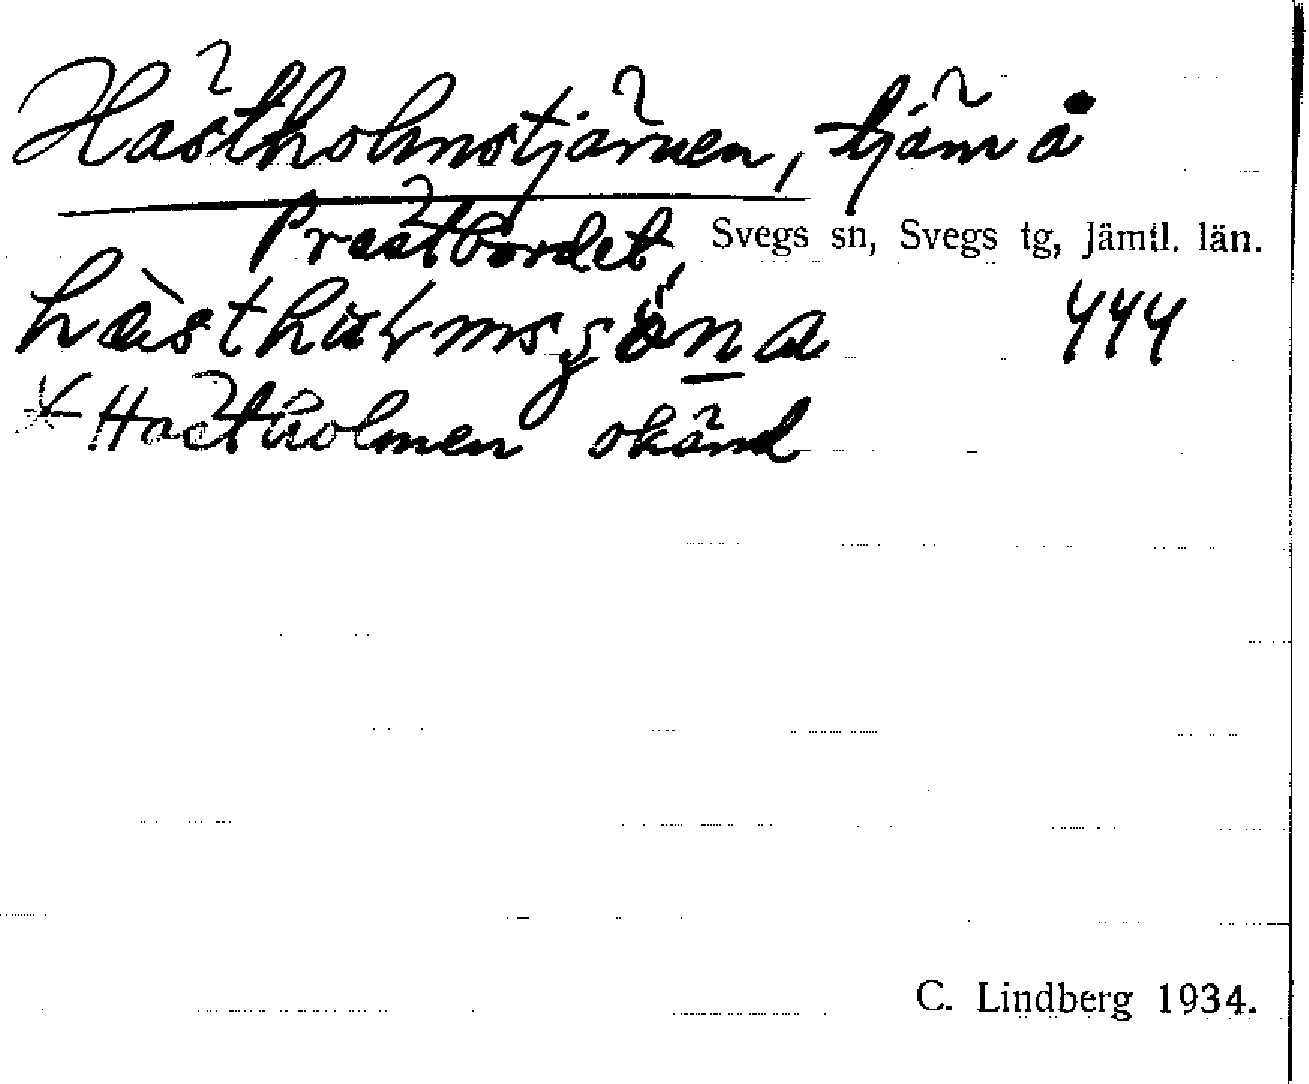 Hästholmstjärnen, tjärn å
Prästbordet, Svegs sn, Svegs tg, Jämtl. län.
444
*Hästholmen okänd
C. Lindberg 1934.